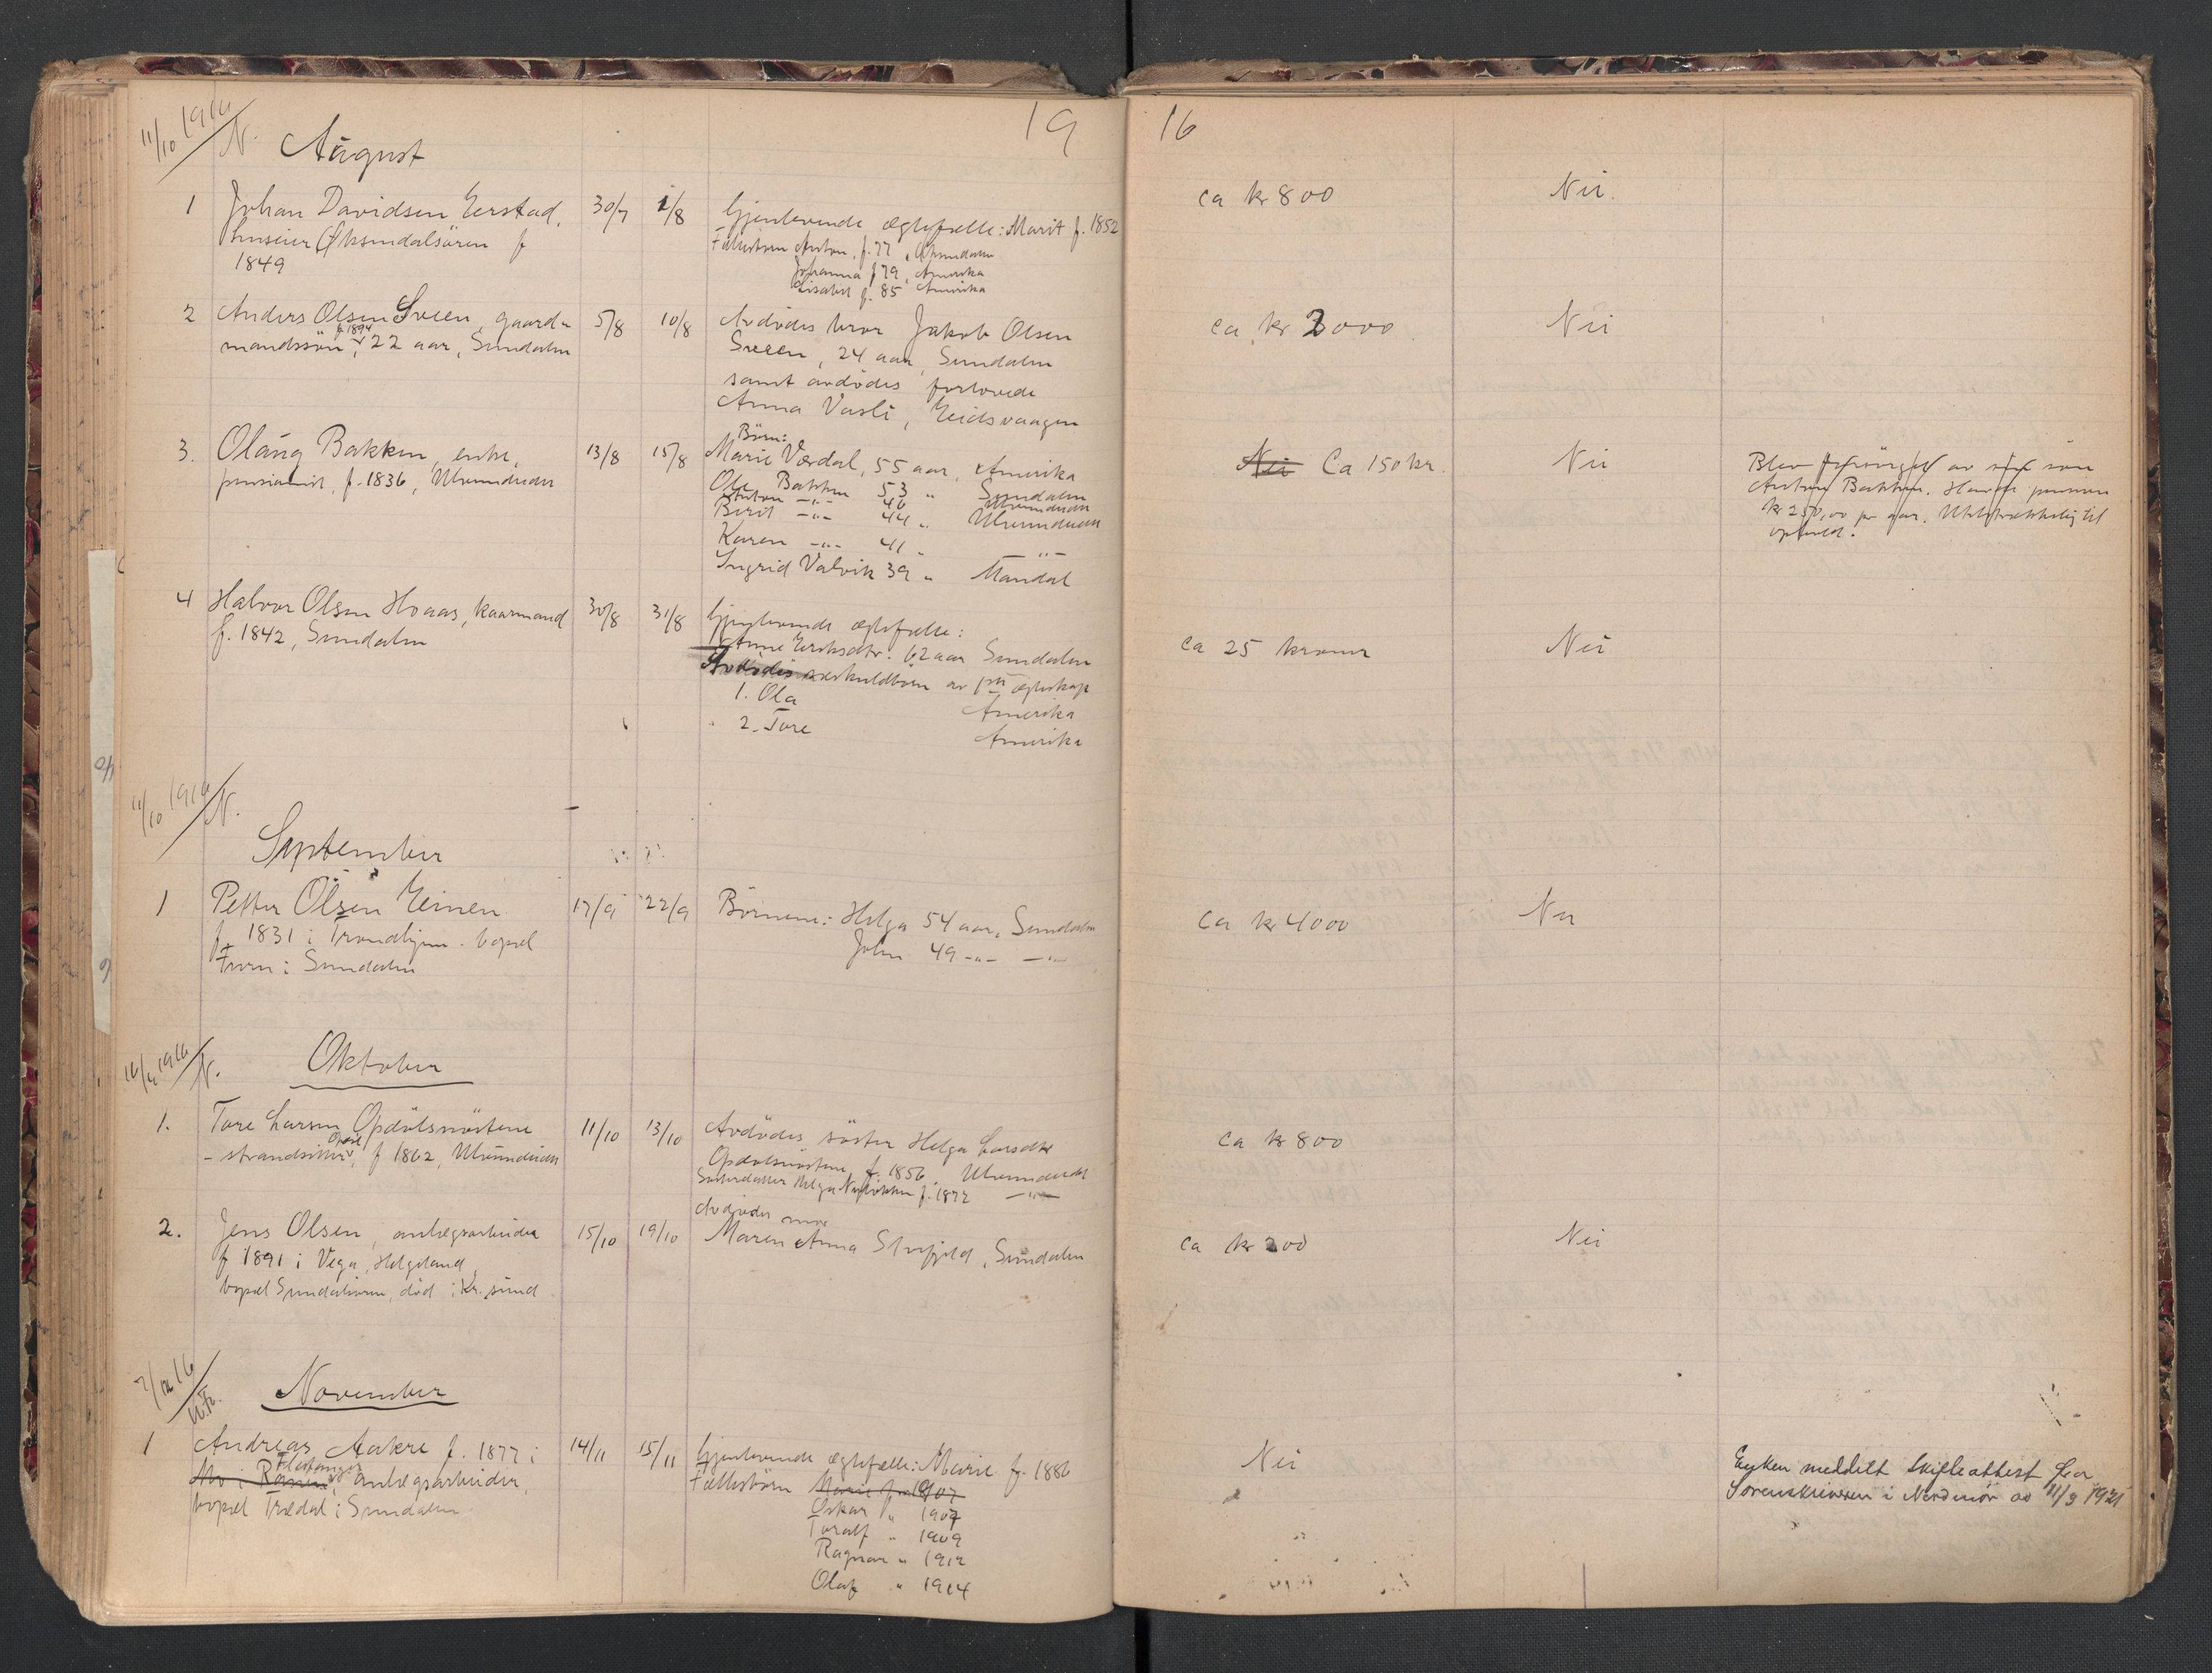 11/10 1916 N. August 19 16
1 Johan Davidsen Eerstad, 30/7 1/8 Gjenlevende ægtefælle: Marit f. 1852 ca kr 800 Nei.
huseier Øksendalsören f Fællesbörn Anton, f. 77, Öksendalen
1849 Johanna f 79, Amerika
Lisabet f. 85 Amerika
2 Anders Olsen Sveen, gaard- 5/8 10/8 Avdödes bror Jakob Olsen ca kr 3000 Nei
mandssön, f. 1894 22 aar, Sundalen Sveen, 24 aar, Sundalen
samt avdödes forlovede
Anna Vasli, Eidsvaagen
3. Olaug Bakken, enke, 13/8 15/8 Börn: Nei Ca 150 kr. Nei Blev forsörget av sin sön
pensionist, f. 1836, Ulvundeidet Marie Værdal, 55 aar, Amerika Anton Bakken. Havde pension
Ole Bakken 53 " Sundalen kr 250,00 pr aar. Utilstrækkelig til
Anton -"- 46 Ulvundeidet ophold.
Berit -"- 44 " Ulvundeidet
Karen -"- 41 " -"-
Ingrid Valvik 39 " Mandal
4 Halvor Olsen Hoaas, kaarmand 30/8 31/8 Gjenlevende ægtefælle: ca 25 kroner Nei
f. 1842, Sundalen Anne Eriksdtr. 62 aar Sundalen
Avdödes særkuldbörn av 1ste ægteskap
1. Ola Amerika
2. Tore Amerika
11/10 1916 N.
September
1 Petter Olsen Einen 17/9 22/9 Börnene: Helga 54 aar, Sundalen ca kr 4000 Nei
f. 1831 i Trondhjem. bopæl John 49 -"- -"-
Furu i Sundalen
16/11 1916 N. Oktober
1. Tore Larsen Opdölsnöstene 11/10 13/10 Avdödes söster Helga Larsdtr ca kr 800
- strandsitter, Opdöl f 1862, Ulvundeidet Opdölsnösten, f. 1856, Ulvundeidet
Södskendatter Helga Nyløkken f. 1872 -"-
2. Jens Olsen, anlægsarbeider 15/10 19/10 Avdödes mor ca kr 200 Nei
f 1891 i Vega, Helgeland, Maren Anna Storfjeld, Sundalen
bopæl Sundalsören, död i Kr.sund
7/12 16 November
1 Andreas Aakre f. 1877 i 14/11 15/11 Gjenlevende ægtefælle: Marie f. 1886 Nei Enken meddelt skifteattest fra
Mo i Ranen, anlægsarbeider, Fællesbörn Marie f. 1907 Sorenskriveren i Nordmör av 11/3 1921
bopæl Trædal i Sundalen Oskar " 1907
Toralf " 1909
Ragnar " 1912
Olaf " 1914